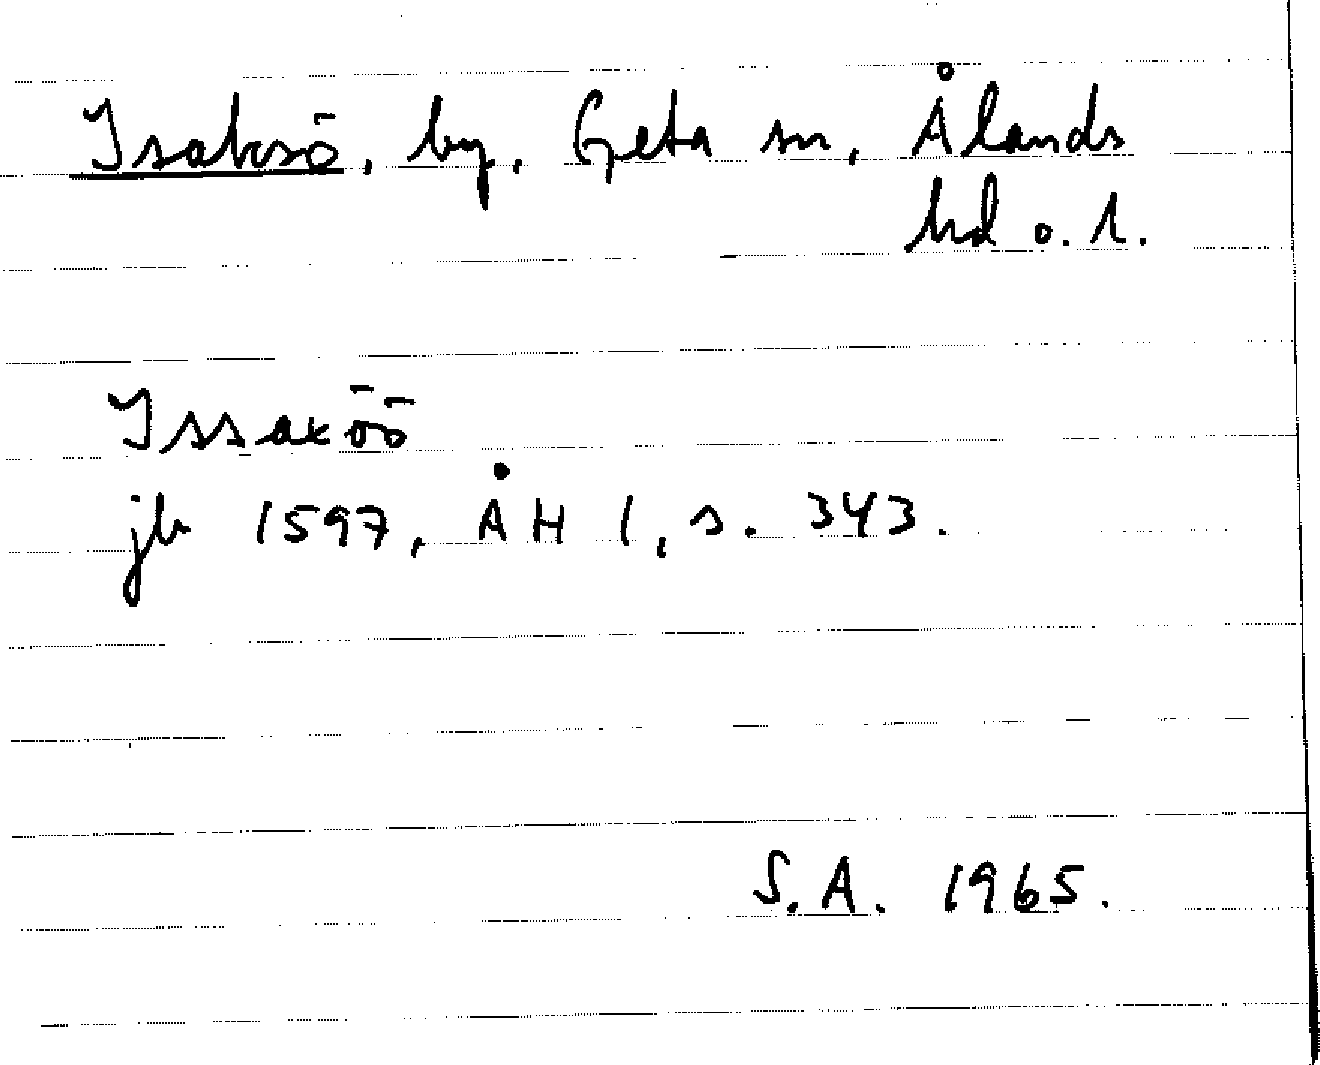 Isaksö, by, Geta sn, Ålands
hd o. l.
Issaxöö
jb 1597, ÅH 1, s. 343.
S.A. 1965.